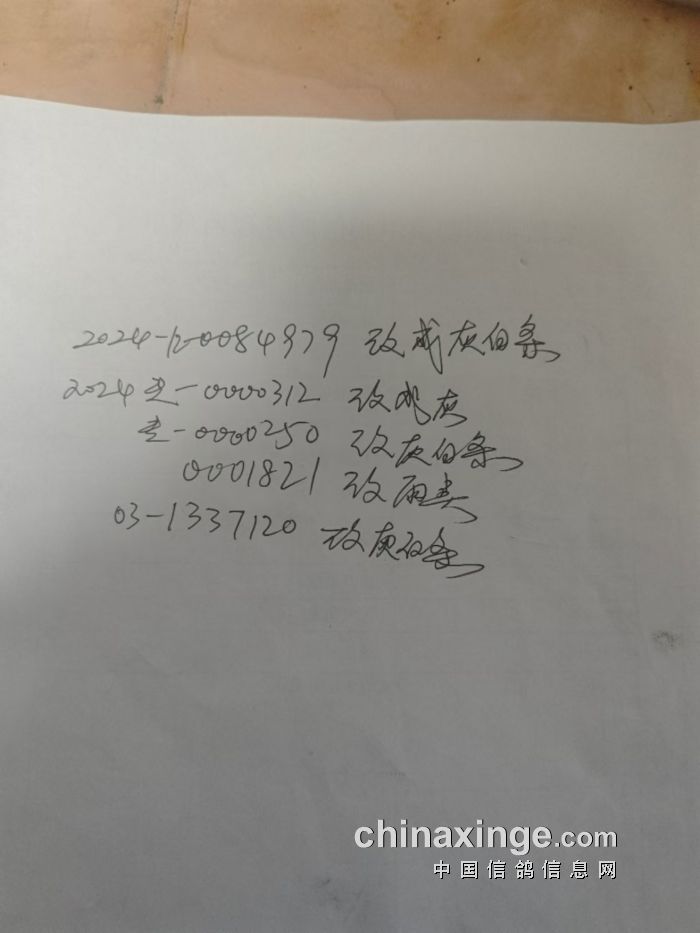 2024-12-0084979 改成灰白条
2024 赛-0000312 改成灰
赛-0000250 改灰白条
0001821 改雨类
03-1337120 改灰白条
chinaxinge.com
中国信鸽信息网